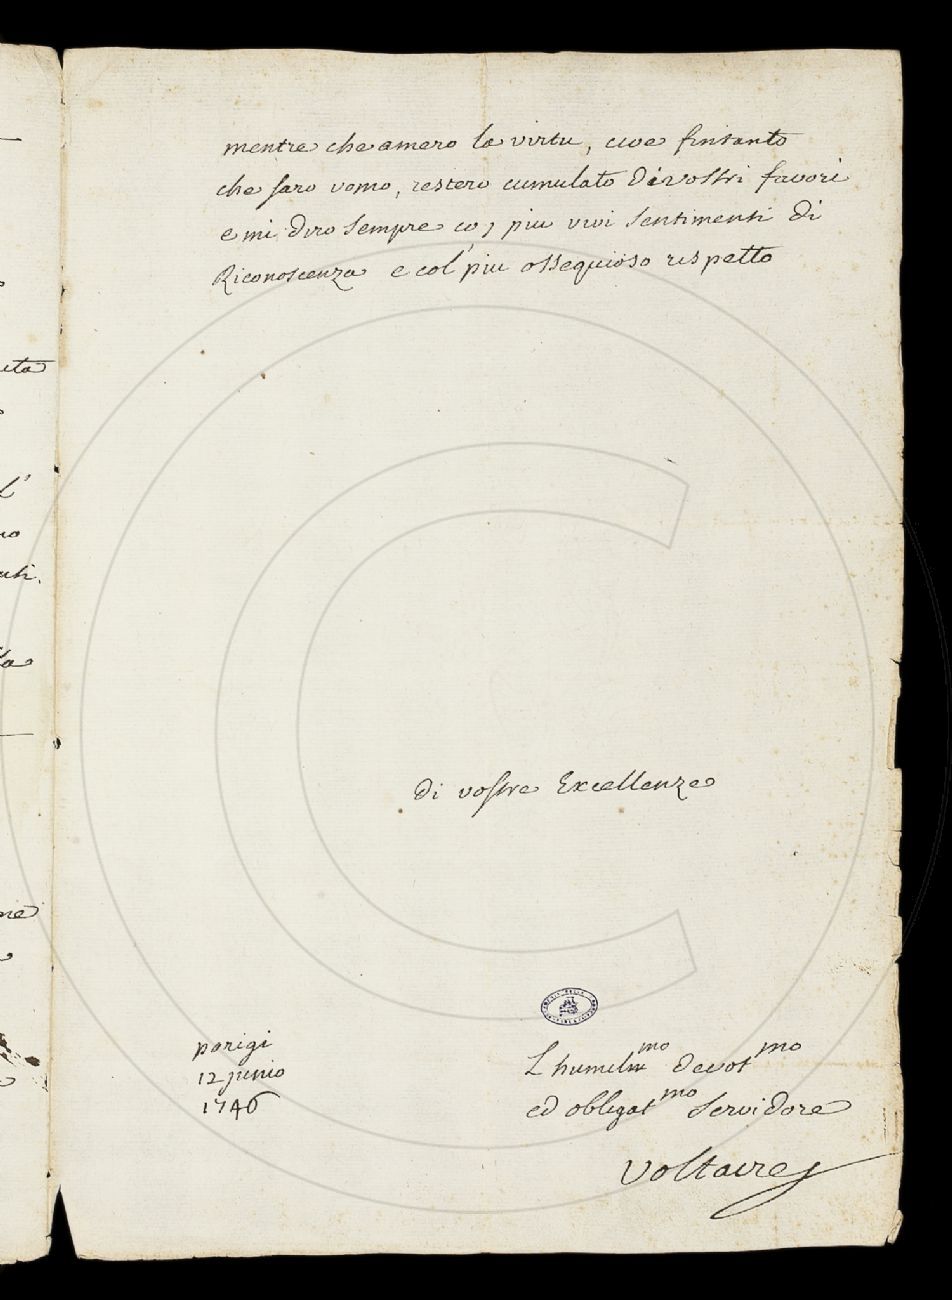 mentre che amero la virtu, cioe finsanto
che saro uomo, restero cumulato di vostri favori
e mi diro sempre co, piu vivi sentimenti di
Riconoscenza e col' piu ossequioso respetto
di vostre Excellenze
parigi
12 junio
1746
L humil mo devot mo
ed obligat mo servidore
Voltaire